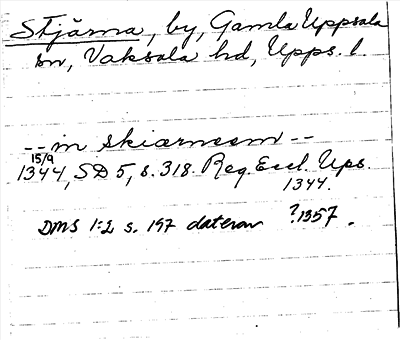 Stjärna, by, Gamla Uppsala
sn, Vaksala hd, Upps. l.
-- in skiærnesm --
15/9
1344, SD 5, s. 318. Reg. Eccl. Ups.
1344.
DMS 1:2 s. 197 daterar ?1357.